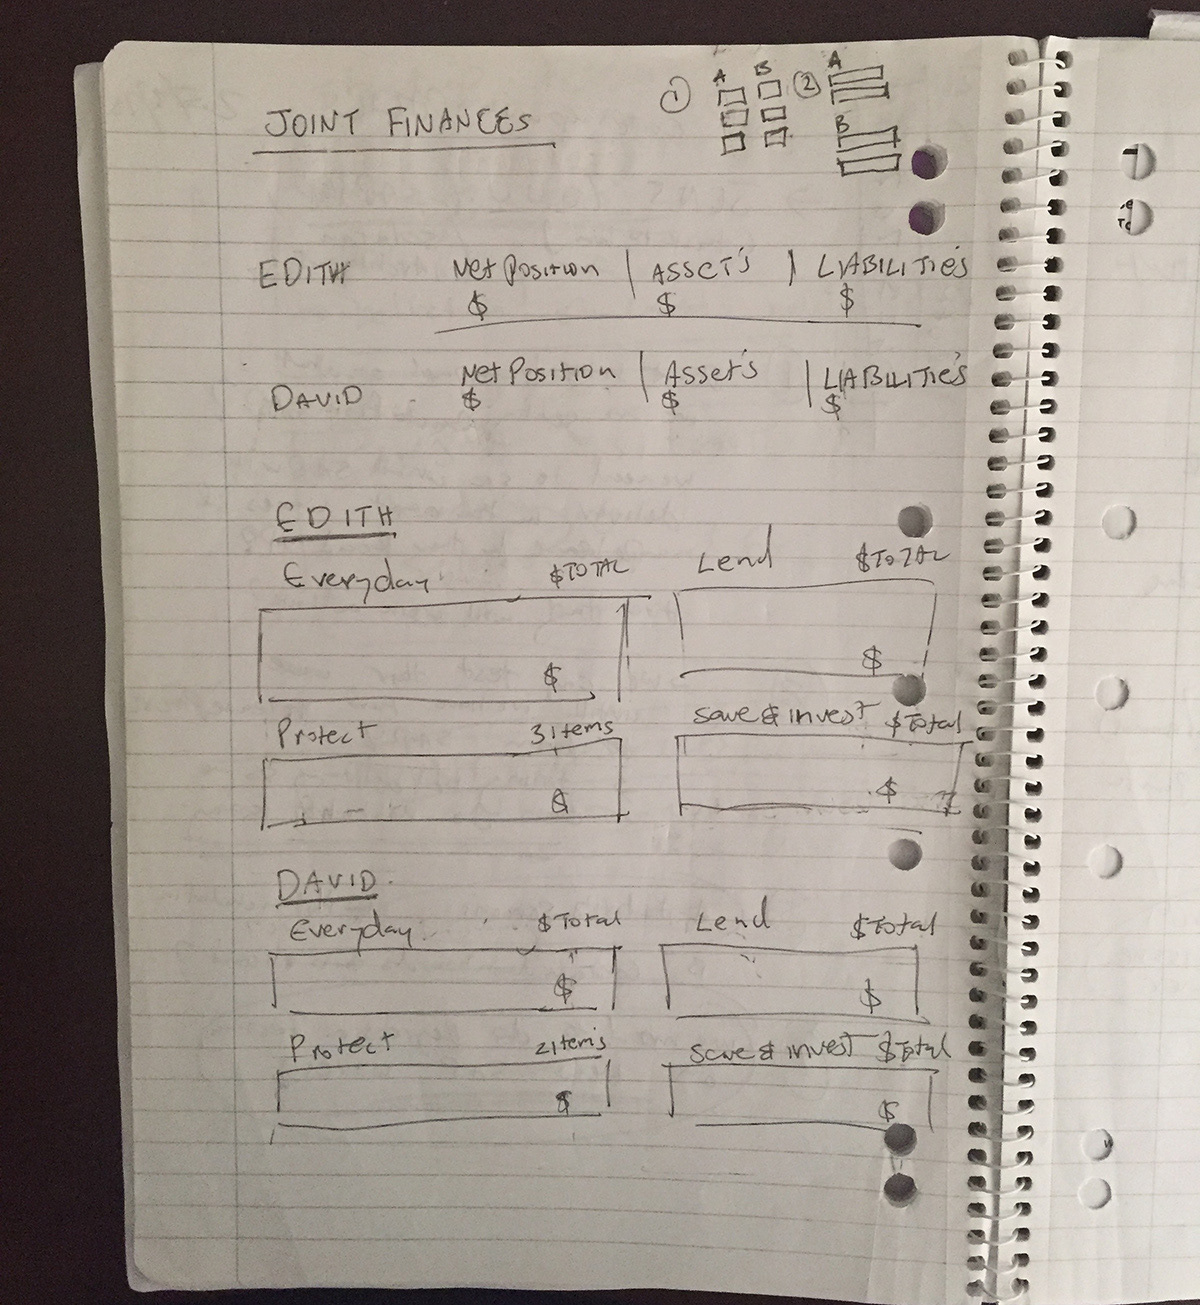 ① A B ② A
B
JOINT FINANCES
EDITH Net Position | ASSET'S | LIABILITIE'S
$ $ $
DAVID Net Position | Asset's | LIABILITIE'S
$ $ $
EDITH
Everyday $TOTAL Lend $TOTAL
$ $
Protect 3 items Save & invest $Total
$ $
DAVID.
Everyday $Total Lend $Total
$ $
Protect 2 item's Save & invest $Total
$ $